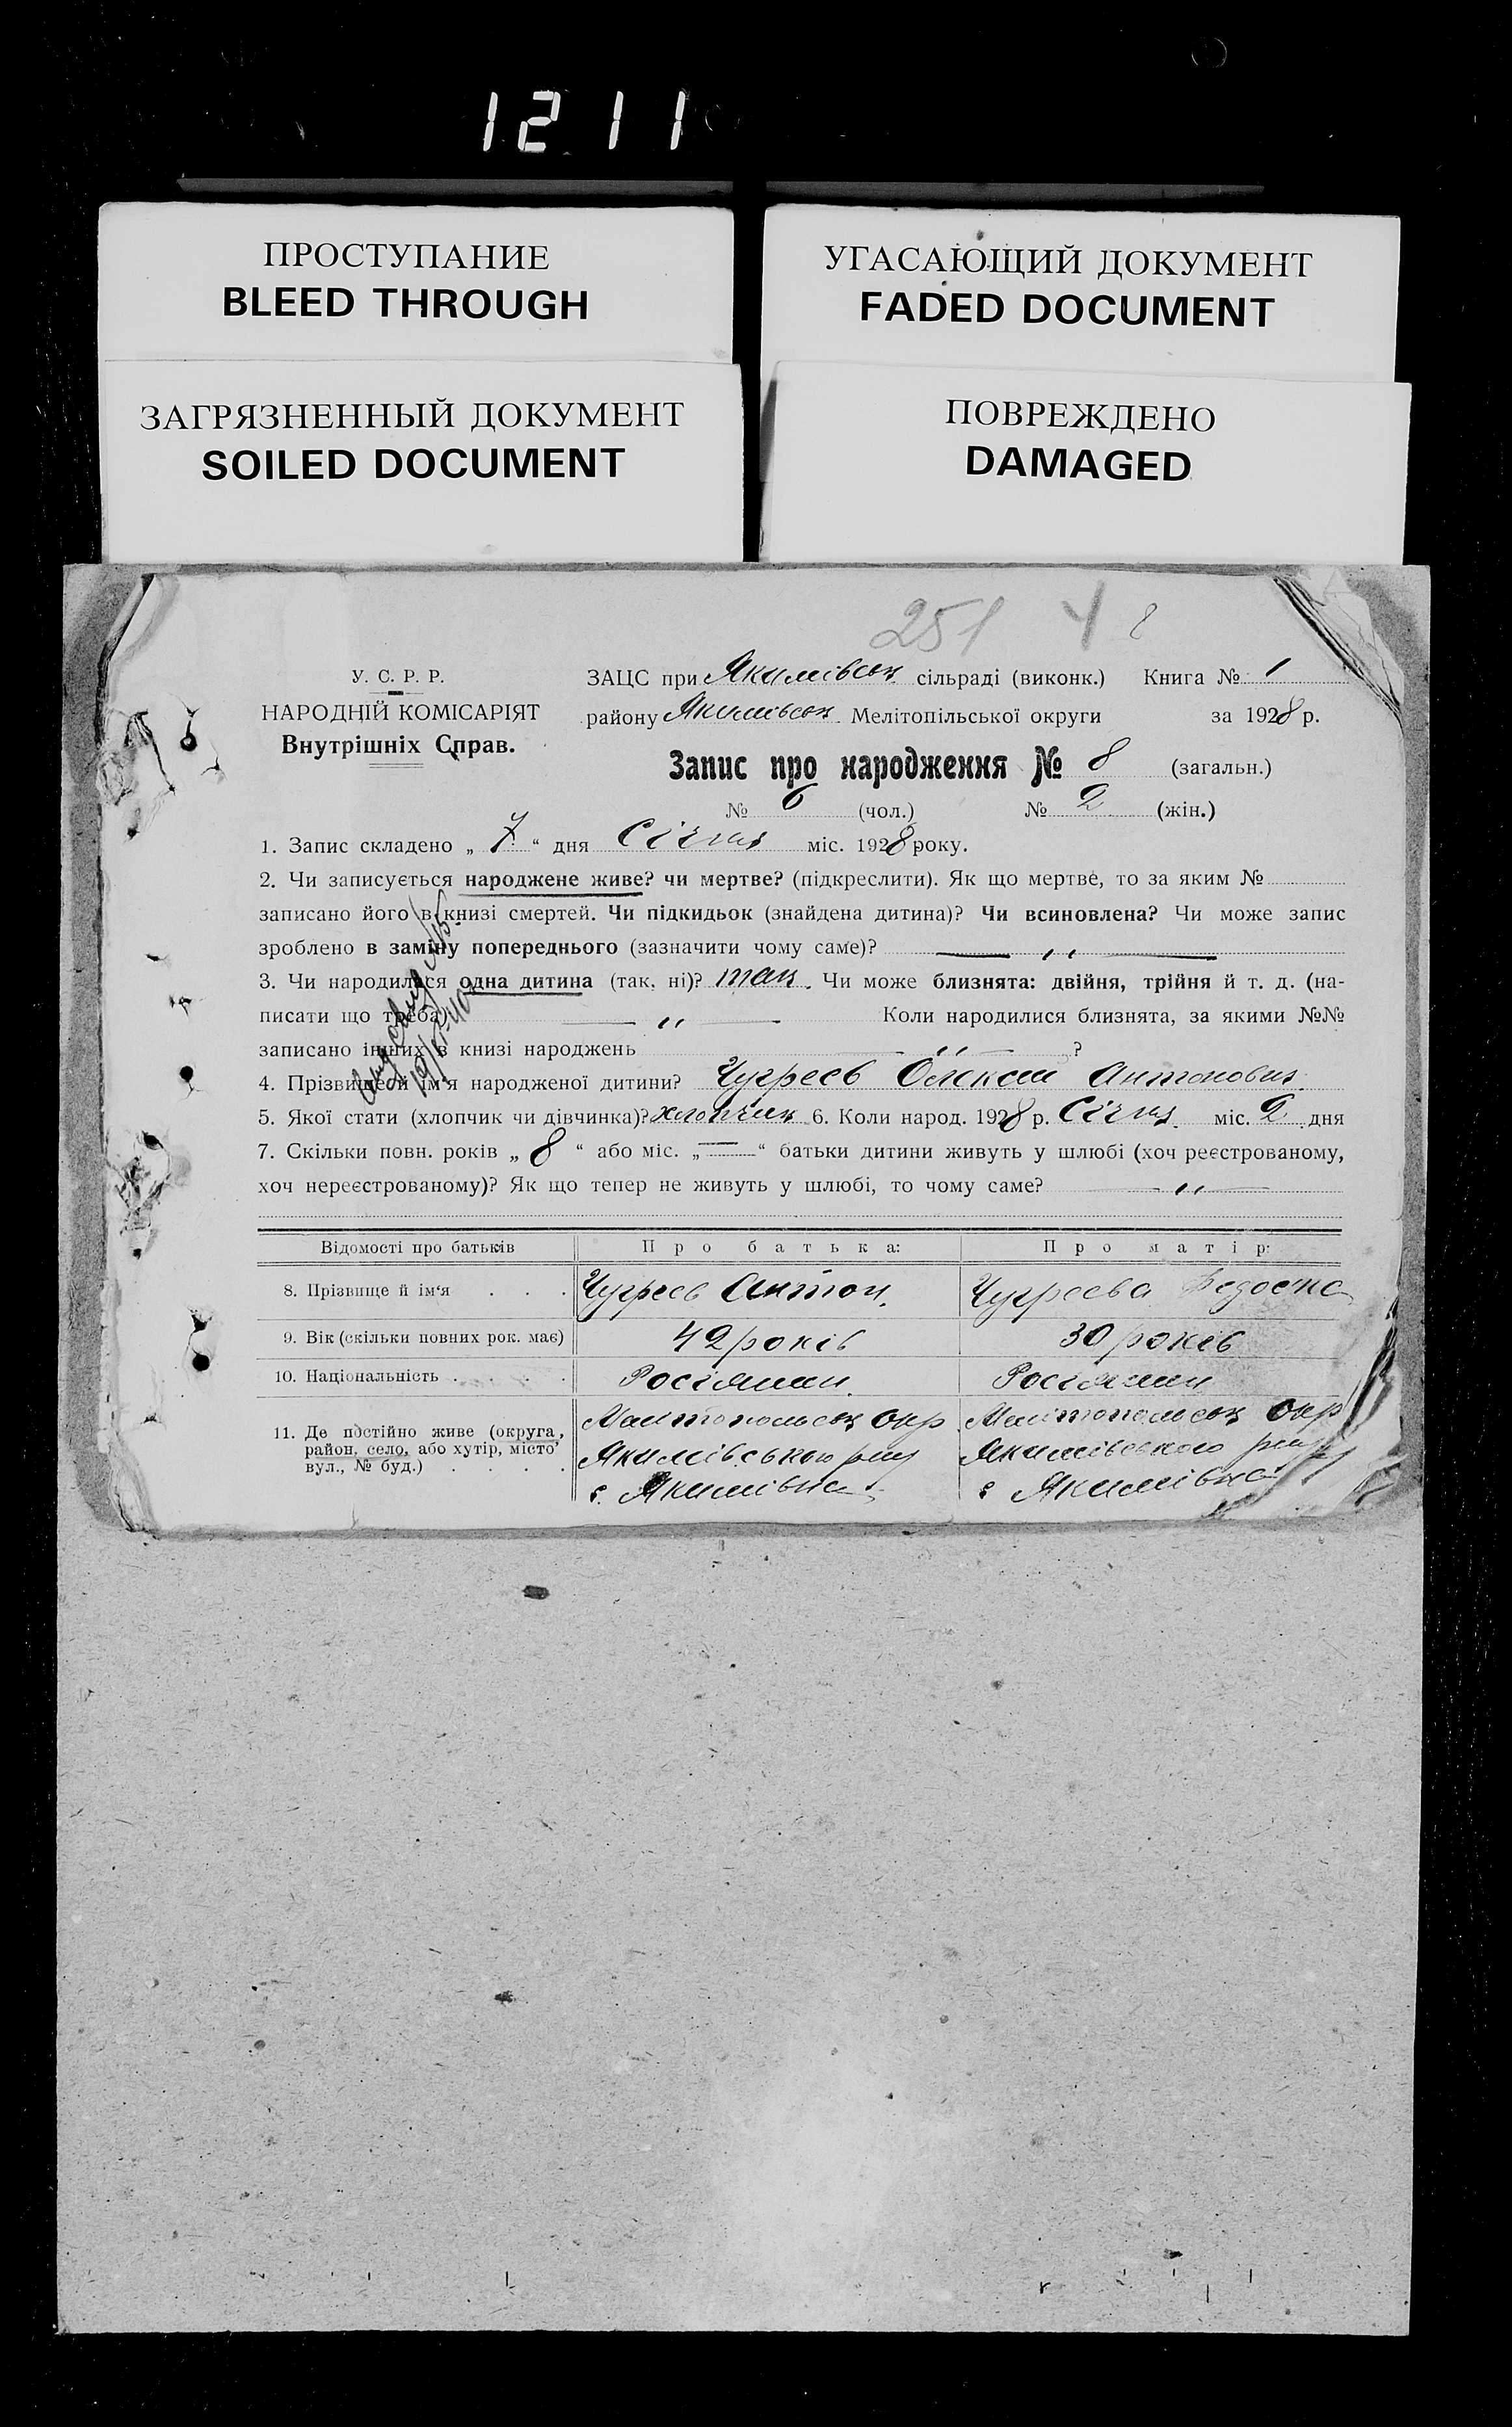 1211
ПРОСТУПАНИЕ
BLEED THROUGH
УГАСАЮЩИЙ ДОКУМЕНТ
FADED DOCUMENT
ЗАГРЯЗНЕННЫЙ ДОКУМЕНТ
SOILED DOCUMENT
ПОВРЕЖДЕНО
DAMAGED
251 4 8
У. С. Р. Р.
НАРОДНІЙ КОМІСАРІЯТ
Внутрішніх Справ.
ЗАЦС при Якимівськ сільраді (виконк.) Книга № 1
району Якимівськ. Мелітопільської округи за 1928 р.
Запис про народження № 8 (загальн.)
№ 6 (чол.) № 2 (жін.)
1. Запис складено „ 7 “ дня Січня міс. 1928 року.
2. Чи записується народжене живе? чи мертве? (підкреслити). Як що мертве, то за яким №
записано його в книзі смертей. Чи підкидьок (знайдена дитина)? Чи всиновлена? Чи може запис
зроблено в заміну попереднього (зазначити чому саме)? — „ —
3. Чи народилася одна дитина (так, ні)? так. Чи може близнята: двійня, трійня й т. д. (на-
писати що треба) — „ — Коли народилися близнята, за якими №№
записано інших в книзі народжень — „ — ?
4. Прізвище й ім'я народженої дитини? Чугреєв Олексій Антонович.
5. Якої стати (хлопчик чи дівчинка)? хлопчик 6. Коли народ. 1928 р. Січня міс. 2 дня
7. Скільки повн. років „ 8 “ або міс. „ — “ батьки дитини живуть у шлюбі (хоч реєстрованому,
хоч нереєстрованому)? Як що тепер не живуть у шлюбі, то чому саме? — „ —
Відомості про батьків Про батька: Про матір:
8. Прізвище й ім‘я . . . Чугреєв Антон. Чугреєва Федосія
9. Вік (скільки повних рок. має) 42 років 30 років
10. Національність . . . . Росіянин. Росіянин
11. Де постійно живе (округа, район, село, або хутір, місто вул., № буд.) . . . .
Мелітопольськ Окр. Мелітопольськ Окр
Якимівського рну Якимівського рну
с. Якимівка с Якимівка